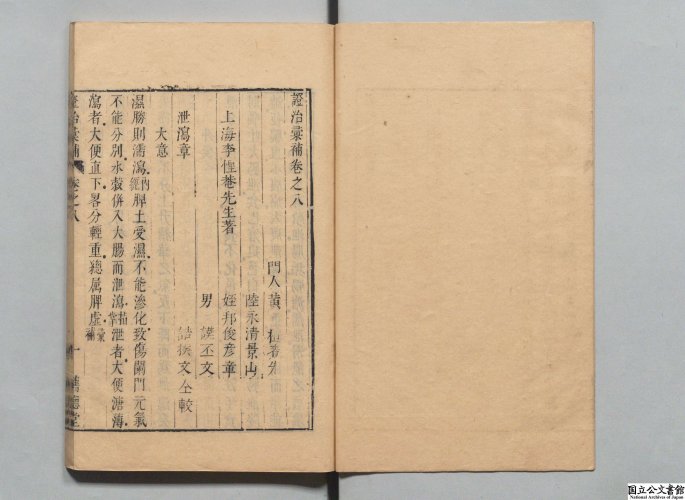 證治彙補卷之八
門人黃
陸永清景山
上海李惺菴先生著
姪邦俊彥章
男
丕文
誥揆文仝較
泄瀉章
大意
濕勝則濡瀉內經脾土受濕不能滲化致傷闌門元氣
不能分別水穀併入大腸而泄瀉指掌泄者大便溏薄
瀉者大便直下畧分輕重總属脾虛彙補
證治彙補
卷之八
一
国立公文書館
National Archives of Japan